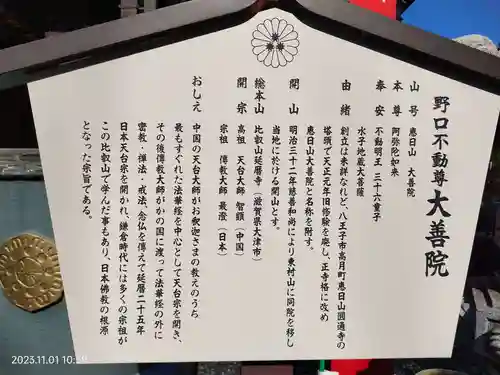 野口不動尊 大善院
山号 恵日山 大善院
本尊 阿弥陀如来
奉安 不動明王 三十六童子
水子地蔵大菩薩
由緒 創立は未詳なれど、八王子市高月町恵日山圓通寺の
塔頭で天正元年旧修験を廃し、正寺格に改め
恵日山大善院と名称を附す。
開山 明治三十二年慈善和尚により東村山に同院を移し
当地に於ける開山とす。
総本山 比叡山延暦寺(滋賀県大津市)
開宗 高祖 天台大師 智顗(中国)
宗祖 傳教大師 最澄(日本)
おしえ 中国の天台大師がお釈迦さまの教えのうち
最もすぐれた法華経を中心として天台宗を開き、
その後傳教大師がかの国に渡って法華経の外に
密教・禅法・戒法、念仏を傳えて延暦二十五年
日本天台宗を開かれ、鎌倉時代には多くの宗祖が
この比叡山で学んだ事もあり、日本佛教の根源
となった宗旨である。
2023.11.01